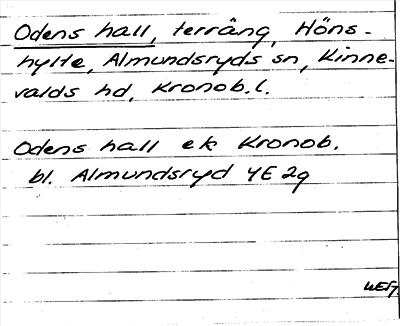 Odens hall, terräng, Höns-
hylte, Almundsryds sn, Kinne-
valds hd, Kronob.l.
Odens hall ek Kronob.
bl. Almundsryd 4E 2g